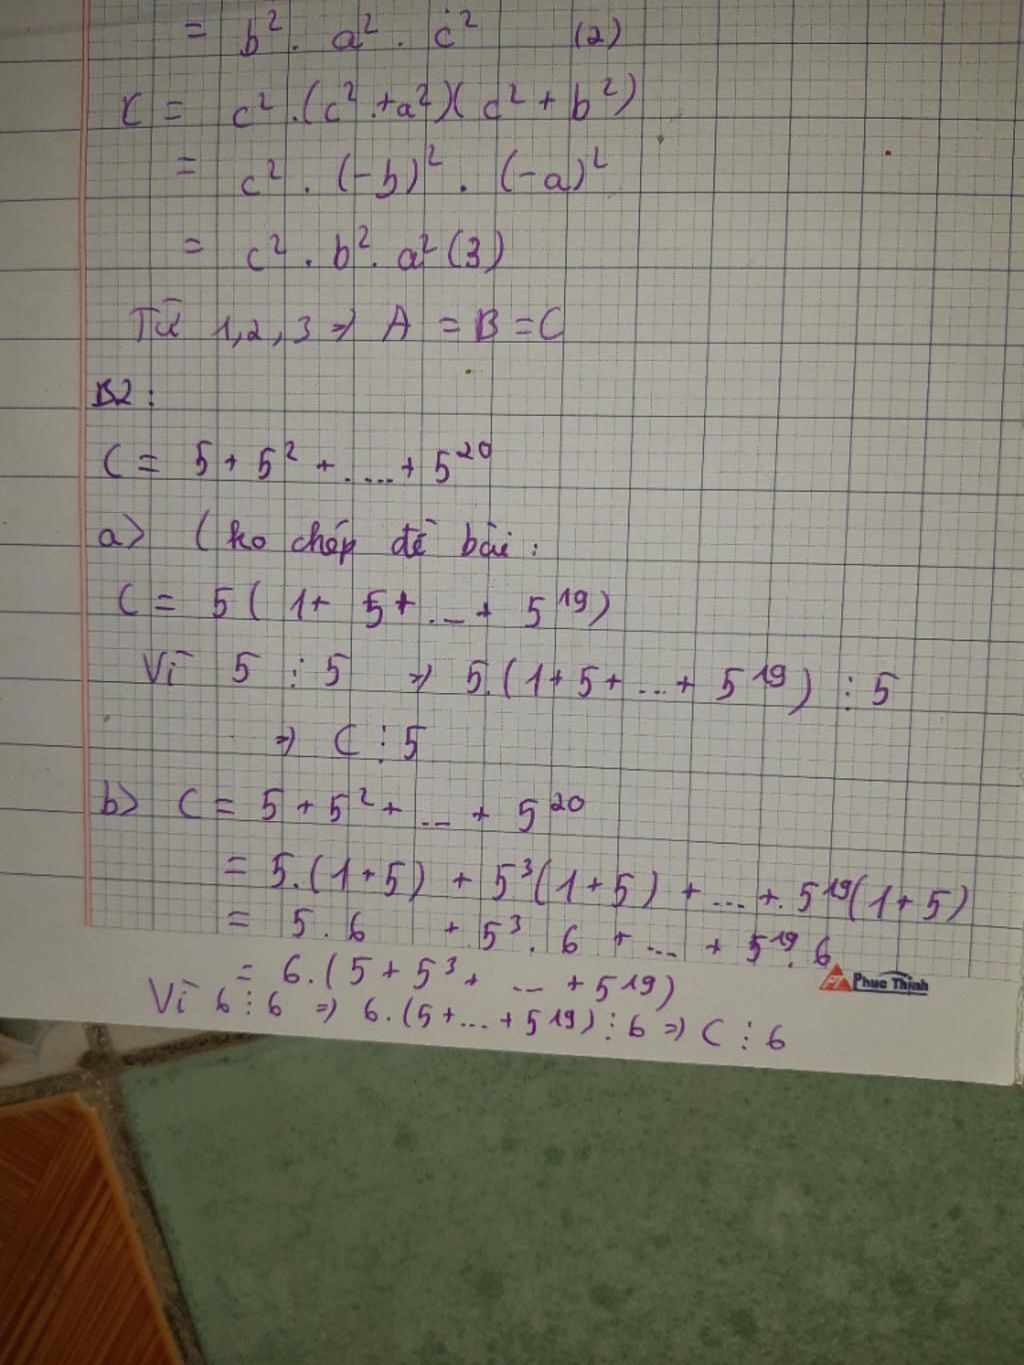 = b². a². c² (2)
C = c².(c²+a²)(c²+b²)
= c².(-b)².(-a)²
= c².b².a² (3)
Từ 1,2,3 ⇒ A = B = C
B2:
C = 5 + 5² + .... + 5²⁰
a> (ko chép đề bài:
C = 5( 1+ 5+ ... + 5¹⁹)
Vì 5 ⋮ 5 ⇒ 5.(1+5+ ... + 5¹⁹) ⋮ 5
⇒ C ⋮ 5
b> C = 5 + 5² + ... + 5²⁰
= 5.(1+5) + 5³(1+5) + ... + 5¹⁹(1+5)
= 5.6 + 5³.6 + ... + 5¹⁹.6
= 6.(5 + 5³ + ... + 5¹⁹)
Phuc Thinh
Vì 6 ⋮ 6 ⇒ 6.(5+...+5¹⁹) ⋮ 6 ⇒ C ⋮ 6